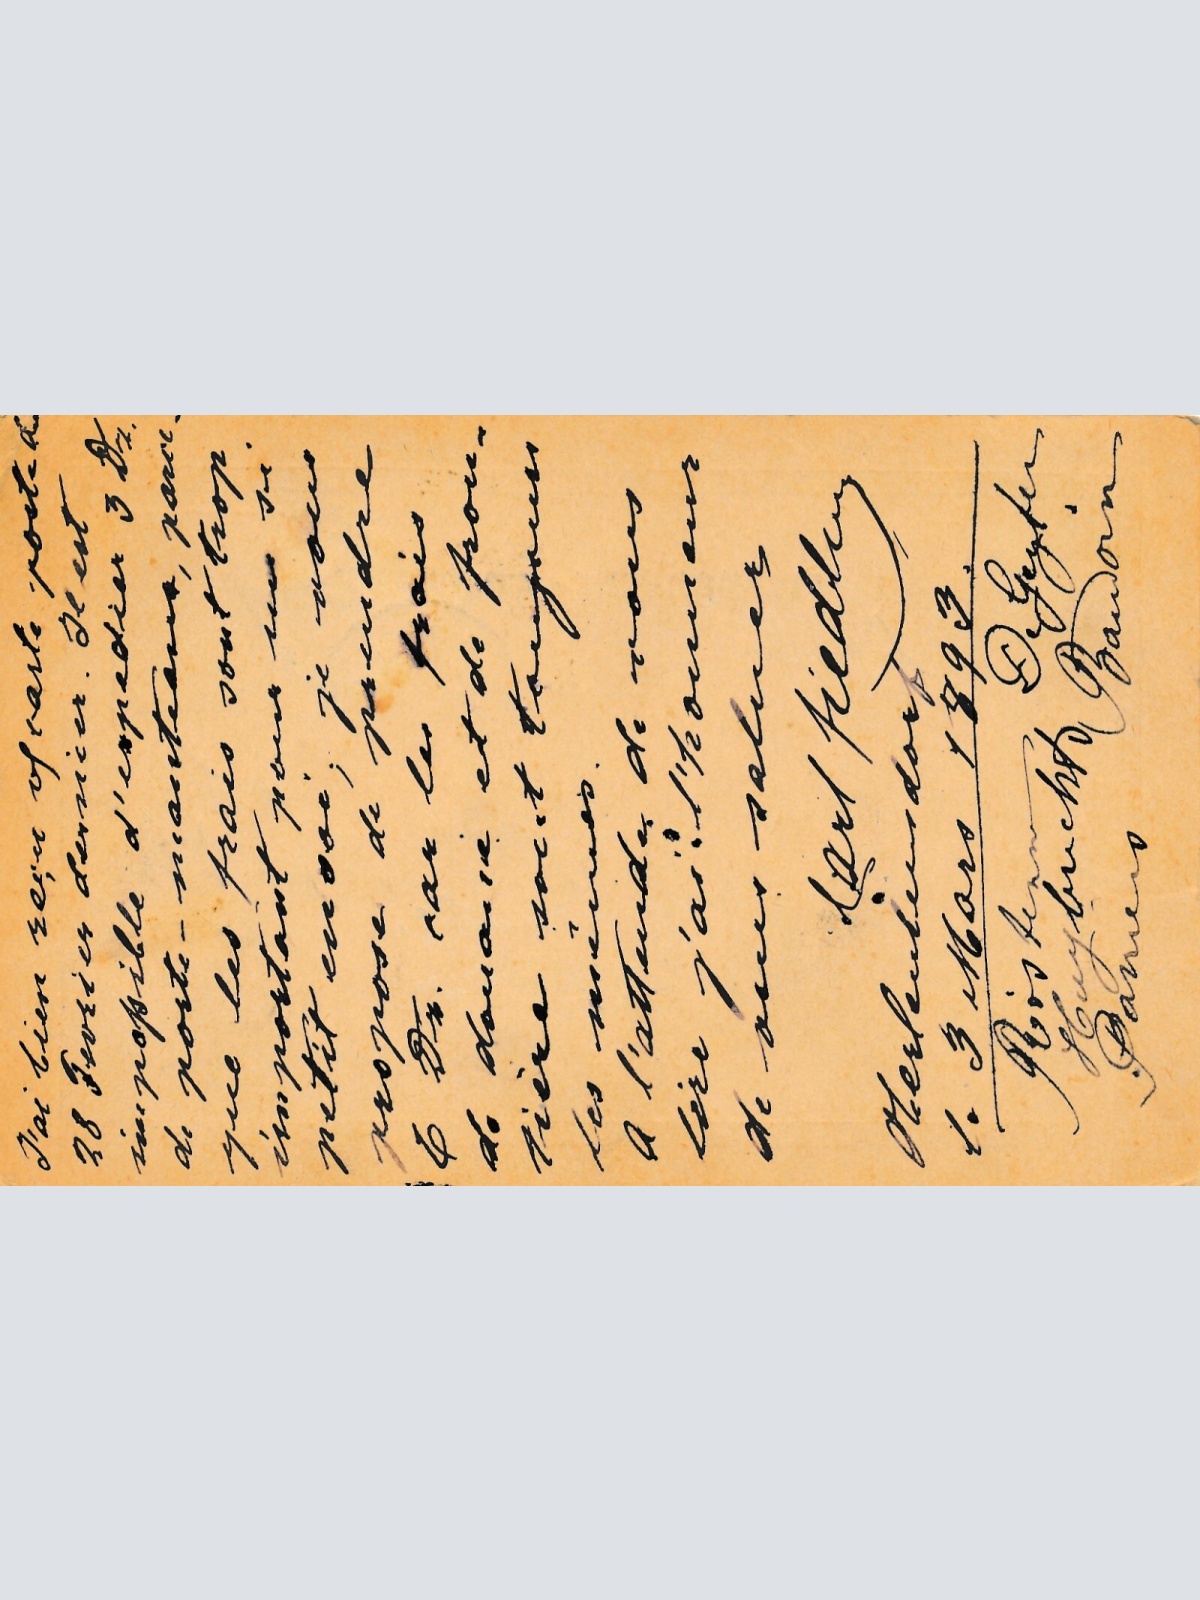 J'ai bien reçu v/ carte postale
28 Fevrier dernier. Il est
impossible d'expedier 3 Dz.
de porte-manteaux, parce-
que les frais sont trop
important pour un si
petit envoi; je vous
propose de prendre
6 Dz. car les frais
de douane et de fron-
tière sont toujours
les mêmes.
A l'attende de vous
lire j'ai l'honneur
de vous saluer
Karl Fiedler
le 3 Mars 1893.
De Geyter
Huybrecht Baudoin